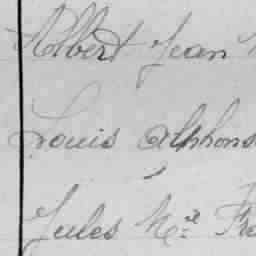 Albert Jean
Louis Alphons
Jules